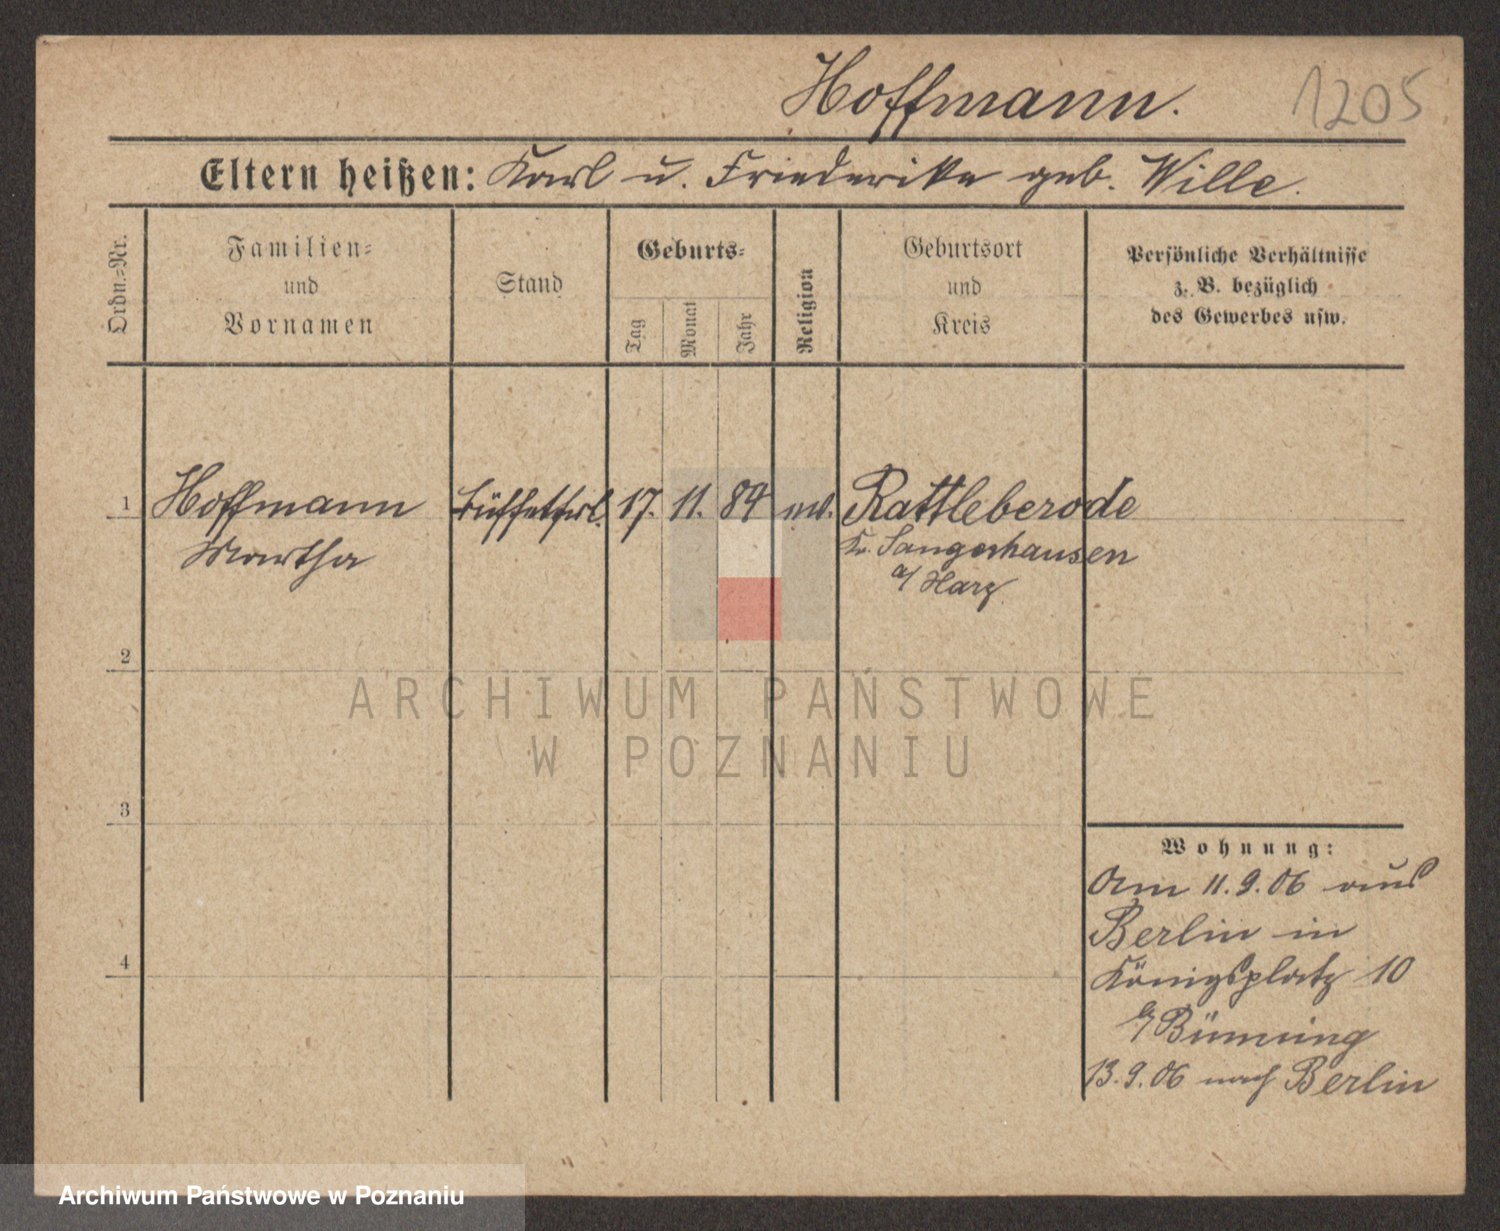 Hoffmann.
1205
Eltern heißen: Karl u. Friederike geb. Wille.
Ordn.=Nr.
Familien=
und
Vornamen
Stand
Geburts=
Tag
Monat
Jahr
Religion
Geburtsort
und
Kreis
Persönliche Verhältnisse
z. B. bezüglich
des Gewerbes usw.
1 Hoffmann Büffetfrl. 17. 11. 84 Rattleberode
Martha Kr. Sangerhausen
a/ Harz
2
ARCHIWUM PAŃSTWOWE
W POZNANIU
3
Wohnung:
Am 11.9.06 aus
Berlin in
4 Königsplatz 10
b/ Bünning
13.9.06 nach Berlin
Archiwum Państwowe w Poznaniu